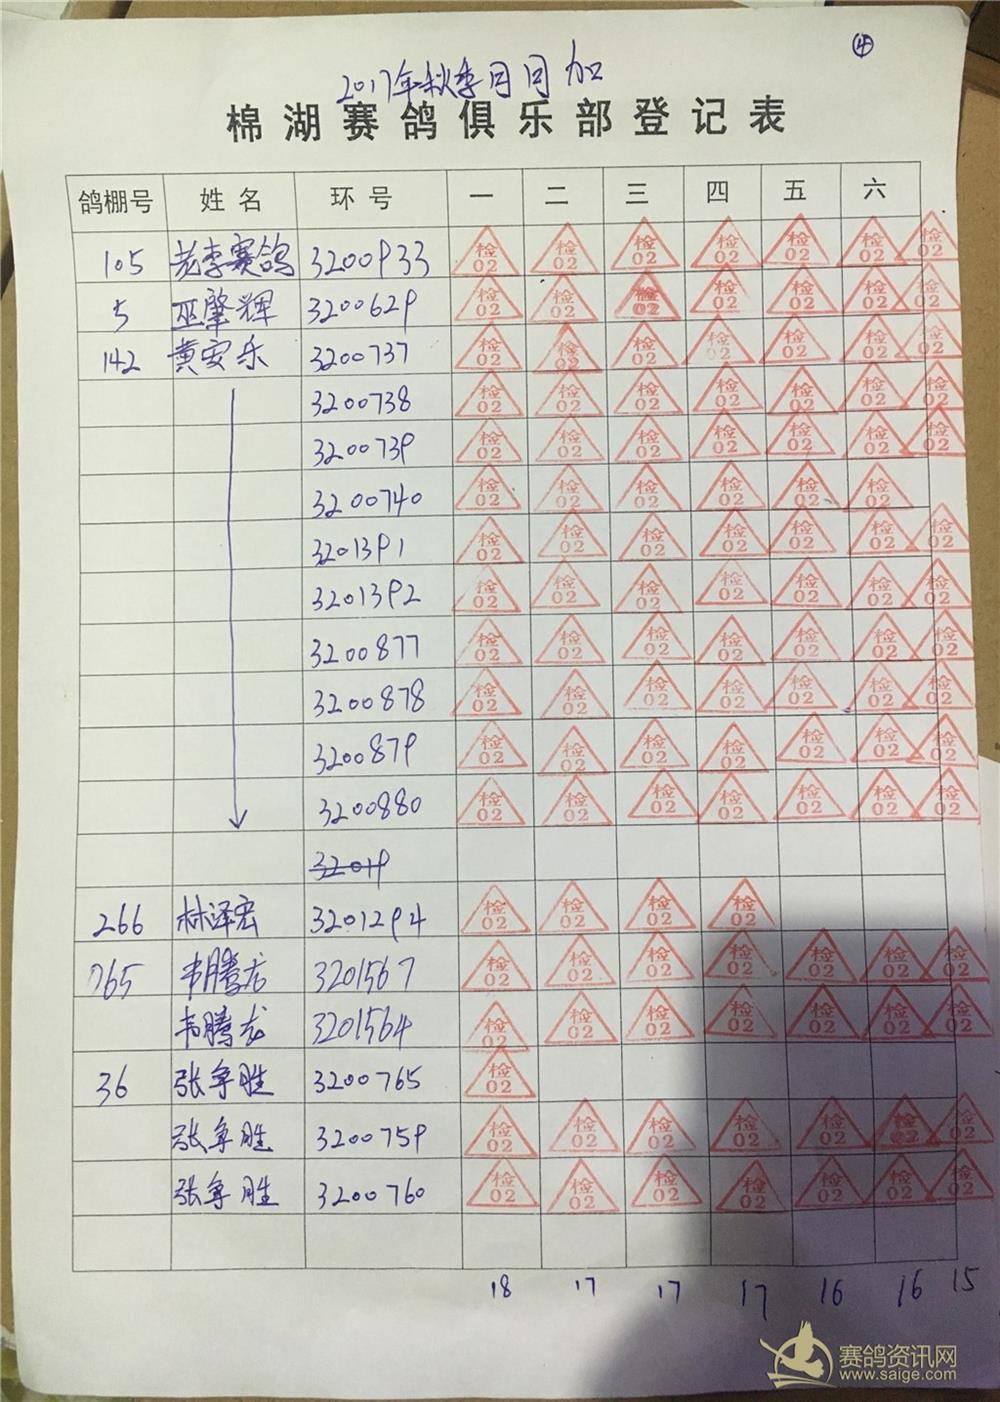 ④
2017年秋季月月加
棉湖赛鸽俱乐部登记表
鸽棚号 姓名 环号 一 二 三 四 五 六
105 老李赛鸽 3200933 检02 检02 检02 检02 检02 检02 检02
5 巫肇辉 3200629 检02 检02 检02 检02 检02 检02 检02
142 黄安乐 3200737 检02 检02 检02 检02 检02 检02 检02
3200738 检02 检02 检02 检02 检02 检02 检02
3200739 检02 检02 检02 检02 检02 检02 检02
3200740 检02 检02 检02 检02 检02 检02
3201391 检02 检02 检02 检02 检02 检02 检02
3201392 检02 检02 检02 检02 检02 检02 检02
3200877 检02 检02 检02 检02 检02 检02 检02
3200878 检02 检02 检02 检02 检02 检02 检02
3200879 检02 检02 检02 检02 检02 检02 检02
3200880 检02 检02 检02 检02 检02 检02 检02
32019
266 林泽宏 3201294 检02 检02 检02 检02
765 韦腾龙 3201567 检02 检02 检02 检02 检02 检02 检02
韦腾龙 3201564 检02 检02 检02 检02 检02 检02 检02
36 张争胜 3200765 检02
张争胜 3200759 检02 检02 检02 检02 检02 检02 检02
张争胜 3200760 检02 检02 检02 检02 检02 检02 检02
18 17 17 17 16 16 15
赛鸽资讯网
www.saige.com